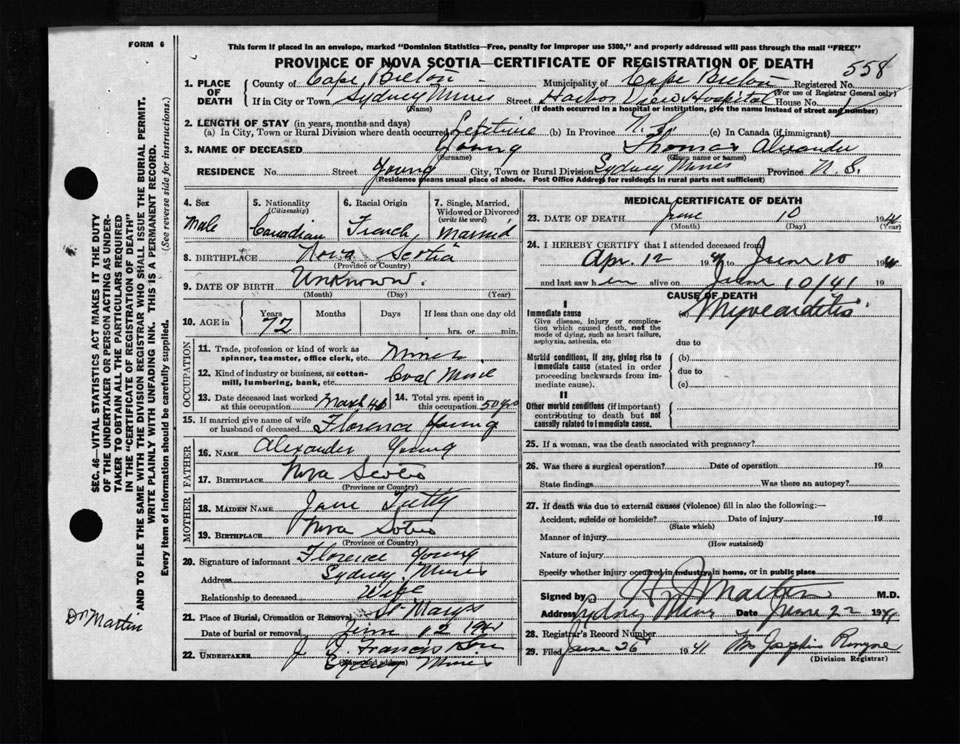 FORM 6
This form if placed in an envelope, marked "Dominion Statistics—Free, penalty for improper use $300," and properly addressed will pass through the mail "FREE"
PROVINCE OF NOVA SCOTIA—CERTIFICATE OF REGISTRATION OF DEATH
558
1. PLACE OF DEATH County of Cape Breton Municipality of Cape Breton Registered No.
(For use of Registrar General only)
If in City or Town Sydney Mines Street Harbor View Hospital House No.
(Name) (If death occurred in a hospital or institution, give the name instead of street and number)
2. LENGTH OF STAY (in years, months and days)
(a) In City, Town or Rural Division where death occurred Lifetime (b) In Province N.S. (c) In Canada (if immigrant)
3. NAME OF DECEASED Young Thomas Alexander
(Surname) (Given name or names)
RESIDENCE No. Street Young City, Town or Rural Division Sydney Mines Province N.S.
(Residence means usual place of abode. Post Office Address for residents in rural parts not sufficient)
4. Sex Male
5. Nationality (Citizenship) Canadian
6. Racial Origin French
7. Single, Married, Widowed or Divorced (write the word) Married
8. BIRTHPLACE Nova Scotia
(Province or Country)
9. DATE OF BIRTH Unknown.
(Month) (Day) (Year)
10. AGE in Years Months Days If less than one day old
72 hrs. or min.
OCCUPATION
11. Trade, profession or kind of work as spinner, teamster, office clerk, etc. Miner
12. Kind of industry or business, as cotton-mill, lumbering, bank, etc. Coal Mine
13. Date deceased last worked at this occupation March 14. Total yrs. spent in this occupation 50 yrs
15. If married give name of wife or husband of deceased Florence Young
FATHER
16. NAME Alexander Young
17. BIRTHPLACE Nova Scotia
(Province or Country)
MOTHER
18. MAIDEN NAME Jane
19. BIRTHPLACE Nova Scotia
(Province or Country)
20. Signature of informant Florence Young
Address Sydney Mines
Relationship to deceased Wife
21. Place of Burial, Cremation or Removal St Marys
Date of burial or removal June 12 1941
22. UNDERTAKER J Francis
(Name and address)
Sydney Mines
MEDICAL CERTIFICATE OF DEATH
23. DATE OF DEATH June 10 1941
(Month) (Day) (Year)
24. I HEREBY CERTIFY that I attended deceased from
Apr. 12 1941 to June 10 1941
and last saw him alive on June 10/41 19
CAUSE OF DEATH
I
Immediate cause (a) Myocarditis
Give disease, injury or complication which caused death, not the mode of dying, such as heart failure, asphyxia, asthenia, etc
due to
Morbid conditions, if any, giving rise to immediate cause (stated in order preceding backwards from immediate cause). (b)
due to
(c)
II
Other morbid conditions (if important) contributing to death but not causally related to immediate cause.
25. If a woman, was the death associated with pregnancy?
26. Was there a surgical operation? Date of operation 19
State findings Was there an autopsy?
27. If death was due to external causes (violence) fill in also the following:—
Accident, suicide or homicide? Date of injury 19
(State which)
Manner of injury
(How sustained)
Nature of injury
Specify whether injury occurred in industry, in home, or in public place
Signed by Martin M.D.
Address Sydney Mines Date June 22 1941
28. Registrar's Record Number
29. Filed June 26 1941 Mrs Josephine
(Division Registrar)
SEC. 46—VITAL STATISTICS ACT MAKES IT THE DUTY
OF THE UNDERTAKER OR PERSON ACTING AS UNDER-
TAKER TO OBTAIN ALL THE PARTICULARS REQUIRED
IN THE "CERTIFICATE OF REGISTRATION OF DEATH"
AND TO FILE THE SAME WITH THE DIVISION REGISTRAR WHO SHALL ISSUE THE BURIAL PERMIT.
WRITE PLAINLY WITH UNFADING INK. THIS IS A PERMANENT RECORD.
Every item of information should be carefully supplied. (See reverse side for instructions.)
Dr Martin